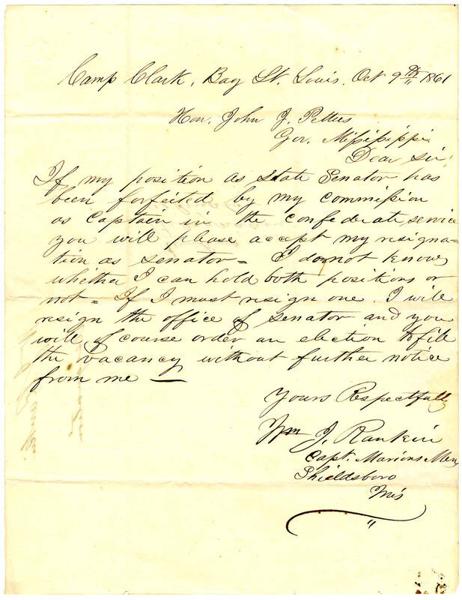 Camp Clark, Bay St. Louis. Oct 9th 1861
Hon. John J. Pettus
Gov. Mississippi
Dear Sir:
If my position as State Senator has
been forfeited by my commission
as Captain in the confederate service
you will please accept my resigna-
tion as Senator - I do not know
whether I can hold both positions or
not - If I must resign one I will
resign the office of Senator and you
will of course order an election to fill
the vacancy without further notice
from me —
Yours Respectfully
Wm J. Rankin
Capt. Marions Men
Shieldsboro
Mis